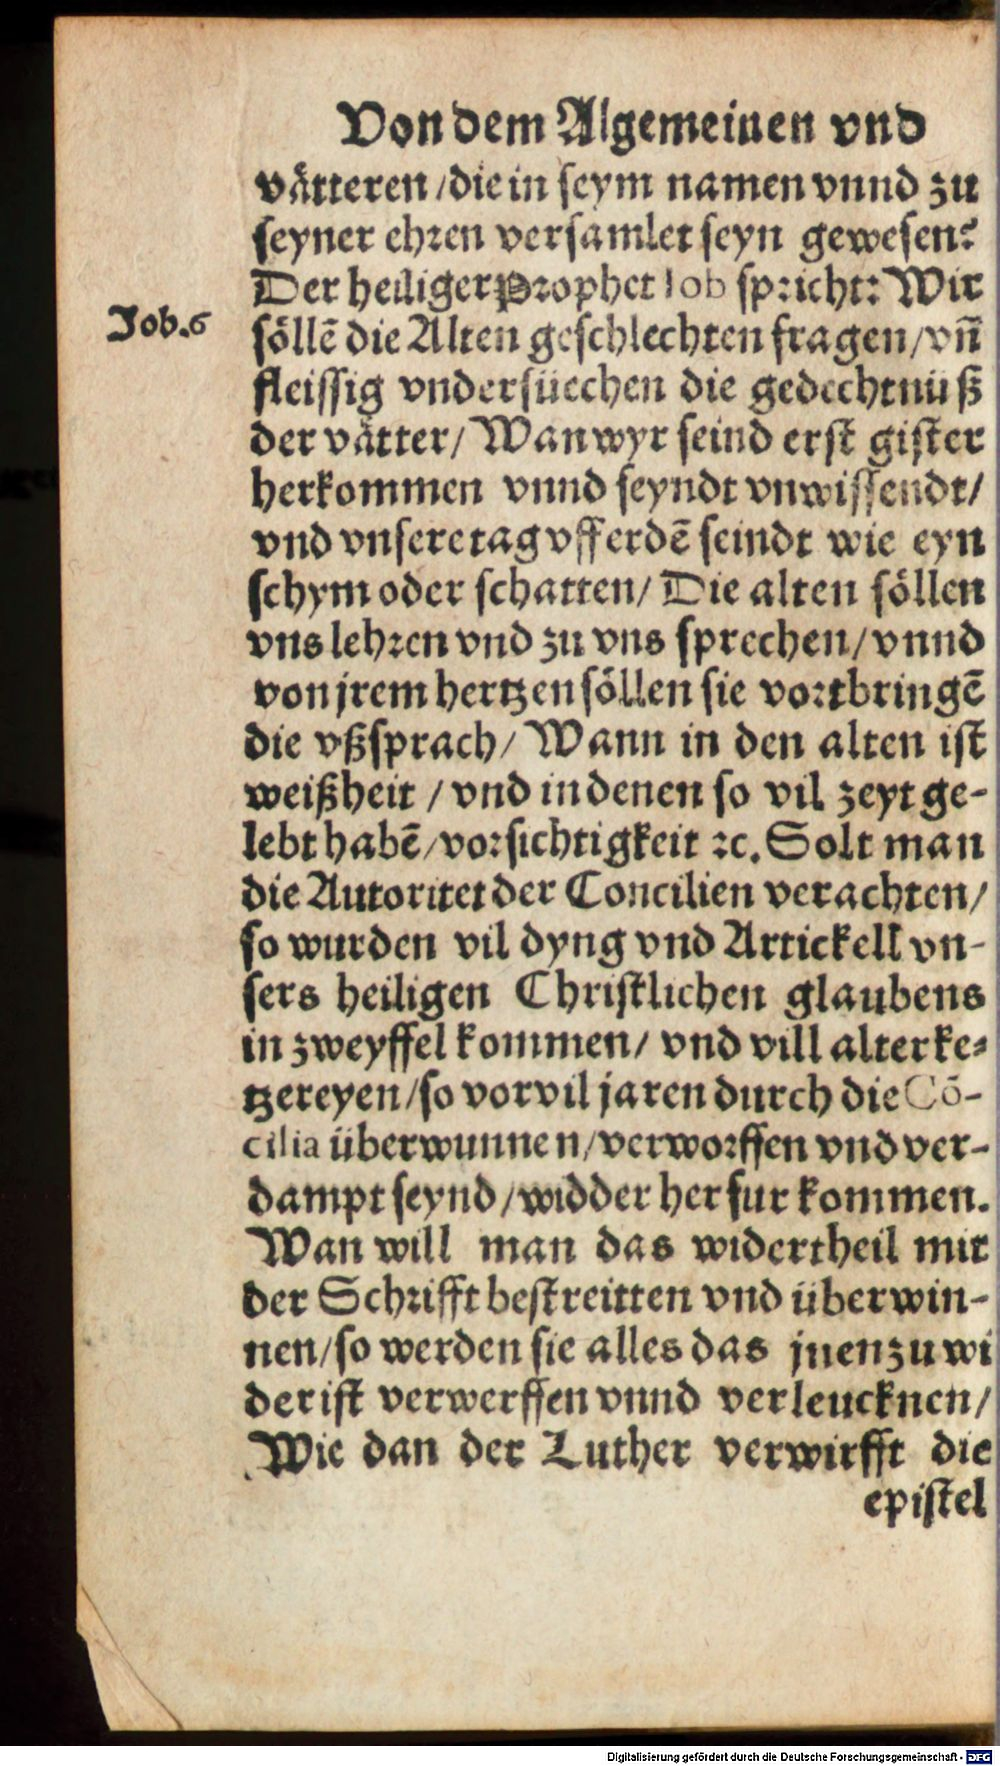 Von dem Algemeinen vnd
vaͤtteren / die in seym namen vnnd zu
seyner ehren versamlet seyn gewesen?
Der heiliger Prophet Iob spricht: Wir
Job.6
soͤllẽ die Alten geschlechten fragen / vñ
fleissig vndersüechen die gedechtnüß
der vaͤtter / Wan wyr seind erst gister
herkommen vnnd seyndt vnwissendt /
vnd vnsere tag vff erdẽ seindt wie eyn
schym oder schatten / Die alten soͤllen
vns lehren vnd zu vns sprechen / vnnd
von jrem hertzen soͤllen sie vortbringẽ
die vßsprach / Wann in den alten ist
weißheit / vnd in denen so vil zeyt ge-
lebt habẽ / vorsichtigkeit ꝛc. Solt man
die Autoritet der Concilien verachten /
so wurden vil dyng vnd Artickell vn-
sers heiligen Christlichen glaubens
in zweyffel kommen / vnd vill alter ke-
tzereyen / so vor vil jaren durch die Cõ-
cilia überwunnen / verworffen vnd ver-
dampt seynd / widder her fur kommen.
Wan will man das widertheil mit
der Schrifft bestreitten vnd überwin-
nen / so werden sie alles das jnen zu wi
der ist verwerffen vnnd verleucknen /
Wie dan der Luther verwirfft die
epistel
Digitalisierung gefördert durch die Deutsche Forschungsgemeinschaft - DFG